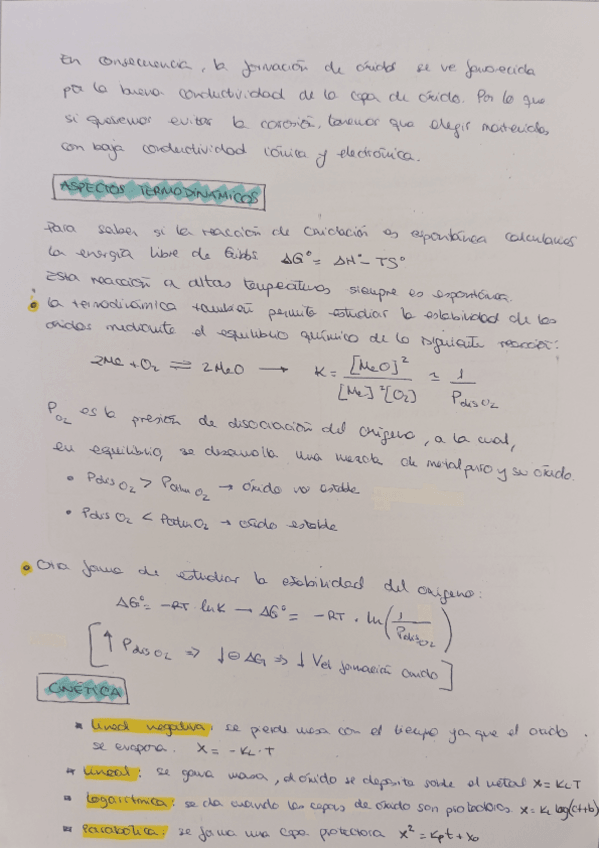 En consecuencia, la formación de óxidos se ve favorecida
por la buena conductividad de la capa de óxido. Por lo que
si queremos evitar la corrosión, tenemos que elegir materiales
con baja conductividad iónica y electrónica.
ASPECTOS TERMODINÁMICOS
Para saber si la reacción de oxidación es espontánea calculamos
la energía libre de Gibbs ΔG° = ΔH° - TS°
Esta reacción a altas temperaturas siempre es espontánea.
• la termodinámica también permite estudiar la estabilidad de los
óxidos mediante el equilibrio químico de la siguiente reacción:
2Me + O₂ ⇌ 2MeO → K = [MeO]² / [Me]²[O₂] ≃ 1 / Pdis O₂
P O₂ es la presión de disociación del oxígeno, a la cual,
en equilibrio, se desarrolla una mezcla de metal puro y su óxido.
• Pdis O₂ > Patm O₂ → óxido no estable
• Pdis O₂ < Patm O₂ → óxido estable
• Otra forma de estudiar la estabilidad del oxígeno:
ΔG° = -RT lnK → ΔG° = -RT · ln(1 / Pdis O₂)
[↑ Pdis O₂ ⇒ ↓⊖ ΔG ⇒ ↓ Vel formación óxido]
CINÉTICA
* lineal negativa: se pierde masa con el tiempo ya que el óxido
se evapora. X = -K_L · T
* lineal: se gana masa, el óxido se deposita sobre el metal X = K_L T
* logarítmica: se da cuando las capas de óxido son protectoras X = K_L log(ct+b)
* Parabólica: se forma una capa protectora X² = Kpt + X₀